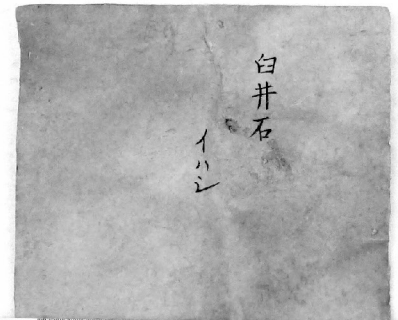 臼井石
イハシ